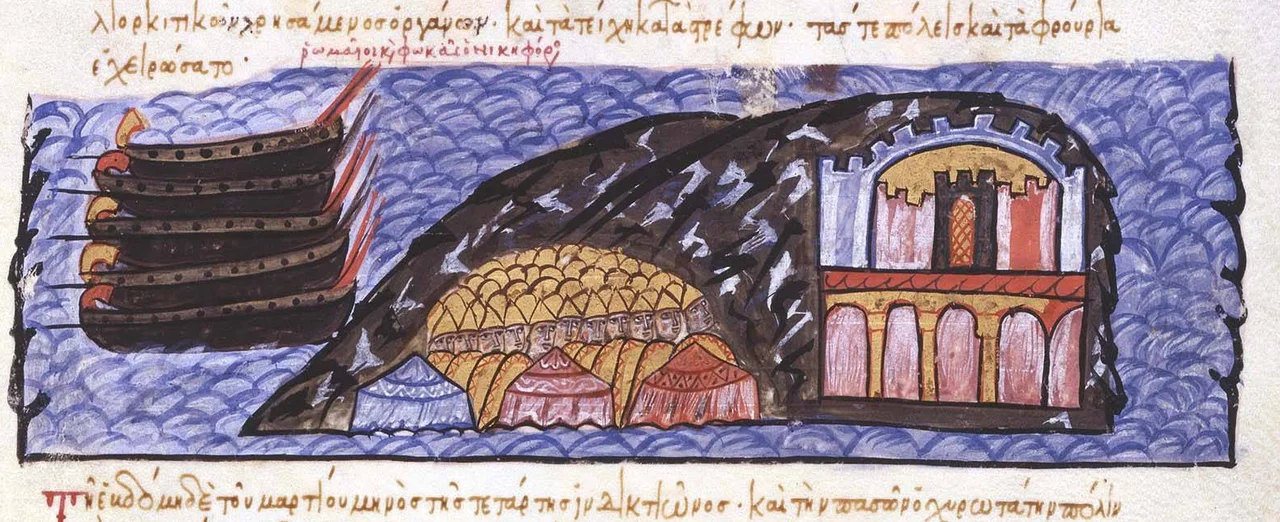 λιορκιτικοῖς χρησάμενος ὀργάνοις· καὶ τὰ τείχη καταστρέφων· τάς τε πόλεις καὶ τὰ φρούρια
ἐχειρώσατο·
ῥωμαῖοι κ φωκᾶς ὁ νικηφόρ
τῇ ἑβδόμῃ δὲ τοῦ μαρτίου μηνὸς τῆς τετάρτης ἰνδικτιῶνος· καὶ τὴν πασῶν ὀχυρωτάτην πόλιν